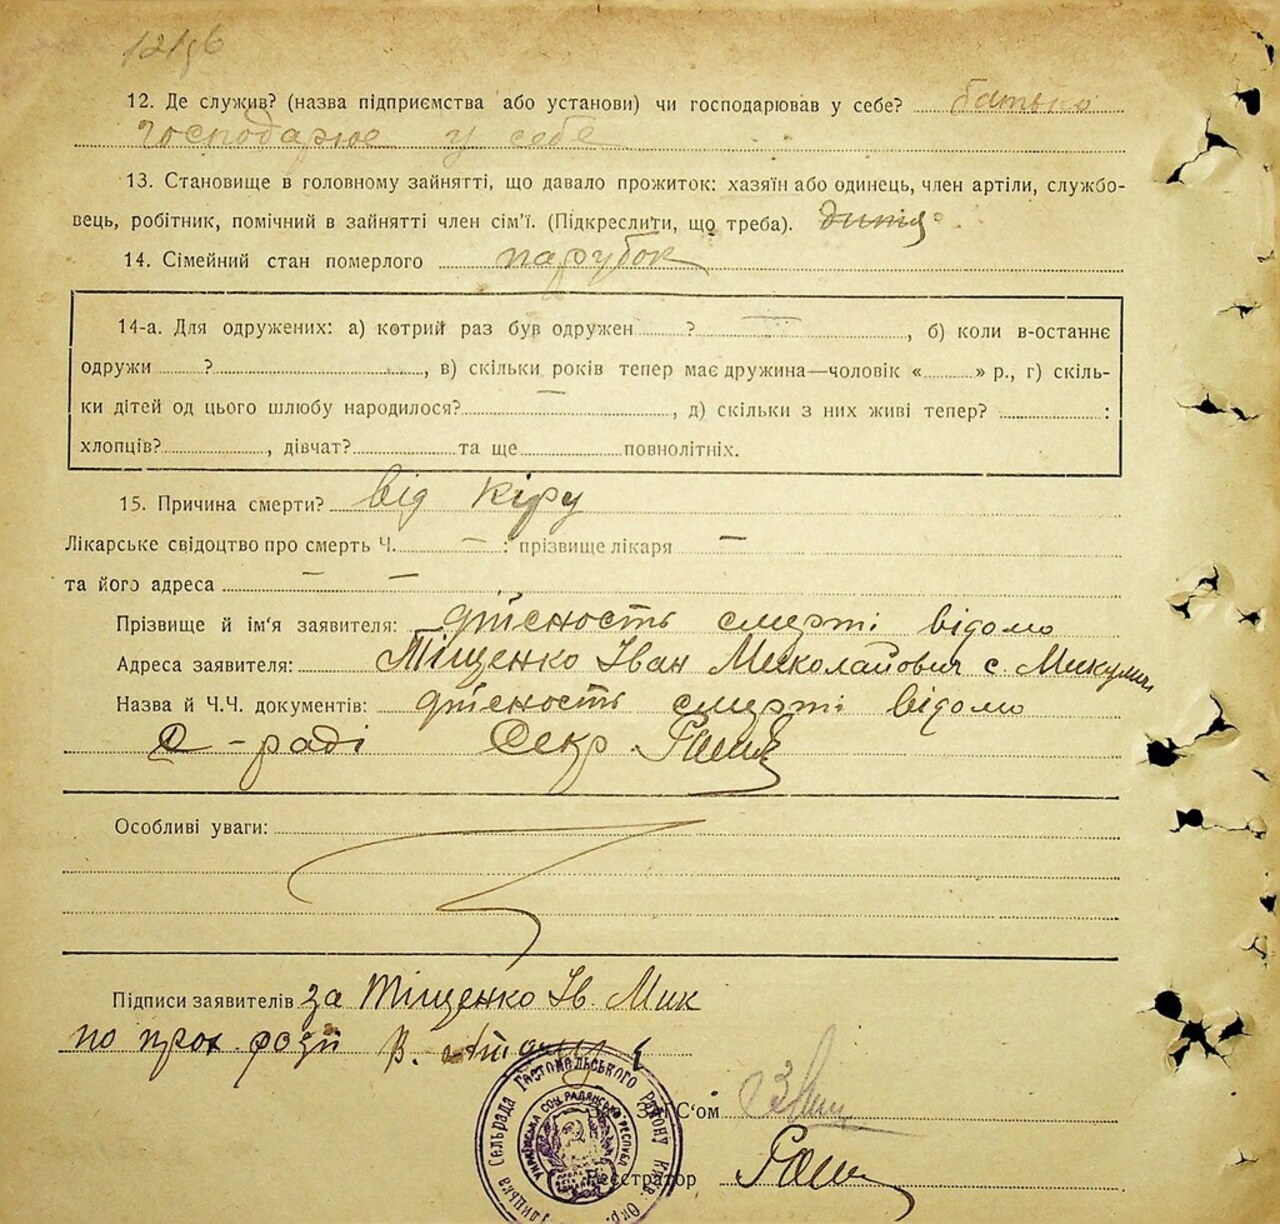 12. Де служив? (назва підприємства або установи) чи господарював у себе? батько
господарює у себе
13. Становище в головному зайнятті, що давало прожиток: хазяїн або одинець, член артіли, службо-
вець, робітник, помічний в зайнятті член сім'ї. (Підкреслити, що треба). дитя
14. Сімейний стан померлого парубок
14-а. Для одружених: а) котрий раз був одружен ? — , б) коли в-останнє
одружи ? , в) скільки років тепер має дружина—чоловік « » р., г) скіль-
ки дітей од цього шлюбу народилося? — , д) скільки з них живі тепер? :
хлопців? , дівчат? та ще повнолітніх.
15. Причина смерти? від кіру
Лікарське свідоцтво про смерть Ч. — : прізвище лікаря —
та його адреса — —
Прізвище й ім'я заявителя: дійсность смерті відомо
Адреса заявителя: Тіщенко Іван Миколайович с. Микуличі
Назва й Ч.Ч. документів: дійсность смерті відомо
С-раді Секр.
Особливі уваги:
Підписи заявителів за Тіщенко Ів. Мик
по прох.
Сельрада Гостомельського Району Київ. Окр.
Українська Соц. Радянська Республ
ЗАГС'ом
Реєстратор